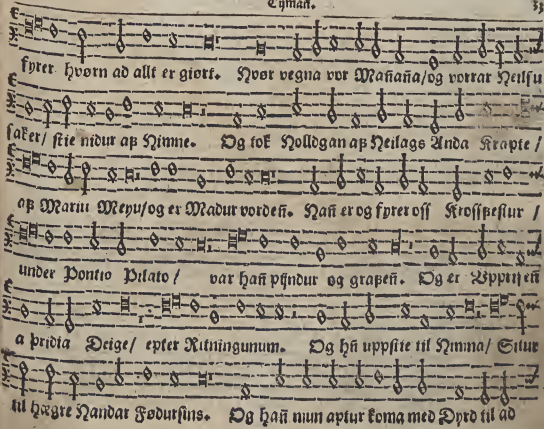 Tijmañ.
fyrer hvørn ad allt er giørt. Hvør vegna vor Mañaña/og vorrar Heilsu
saker/ stie nidur aß Himne. Og tok Holldgan aß Heilags Anda Krapte /
aß Mariu Meyu/og er Madur vordeñ. Hañ er og fyrer oss Krossßestur /
under Pontio Pilato / var hañ pijndur og graßeñ. Og er Upprijseñ
a þridia Deige/ epter Ritningunum. Og hñ uppstie til Himna/ Situr
til hægre Handar Fødursins. Og hañ mun aptur koma med Dyrd til ad